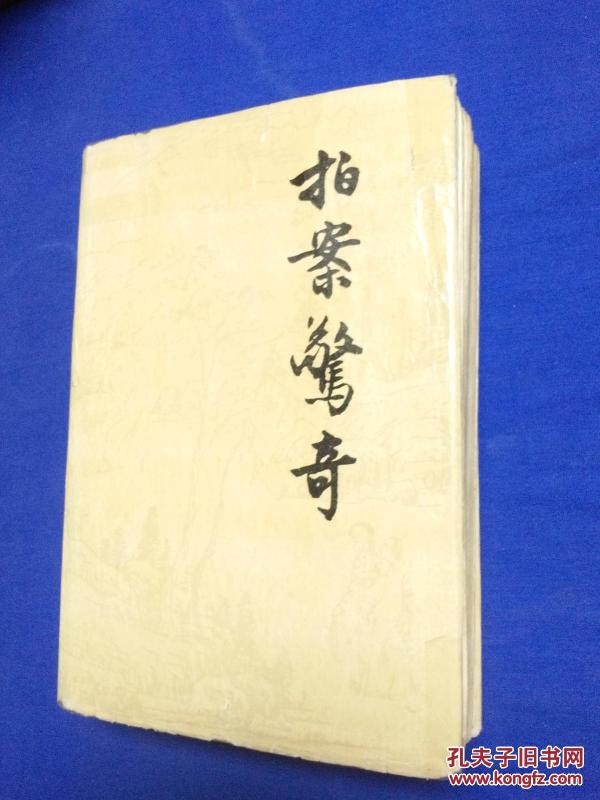 拍案驚奇
孔夫子旧书网
www.kongfz.com